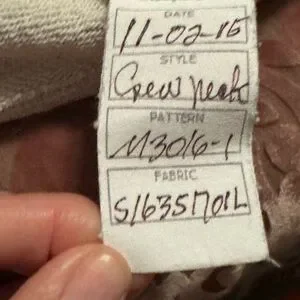 DATE
11-02-15
STYLE
Crew Neck
PATTERN
M3016-1
FABRIC
S16351701L